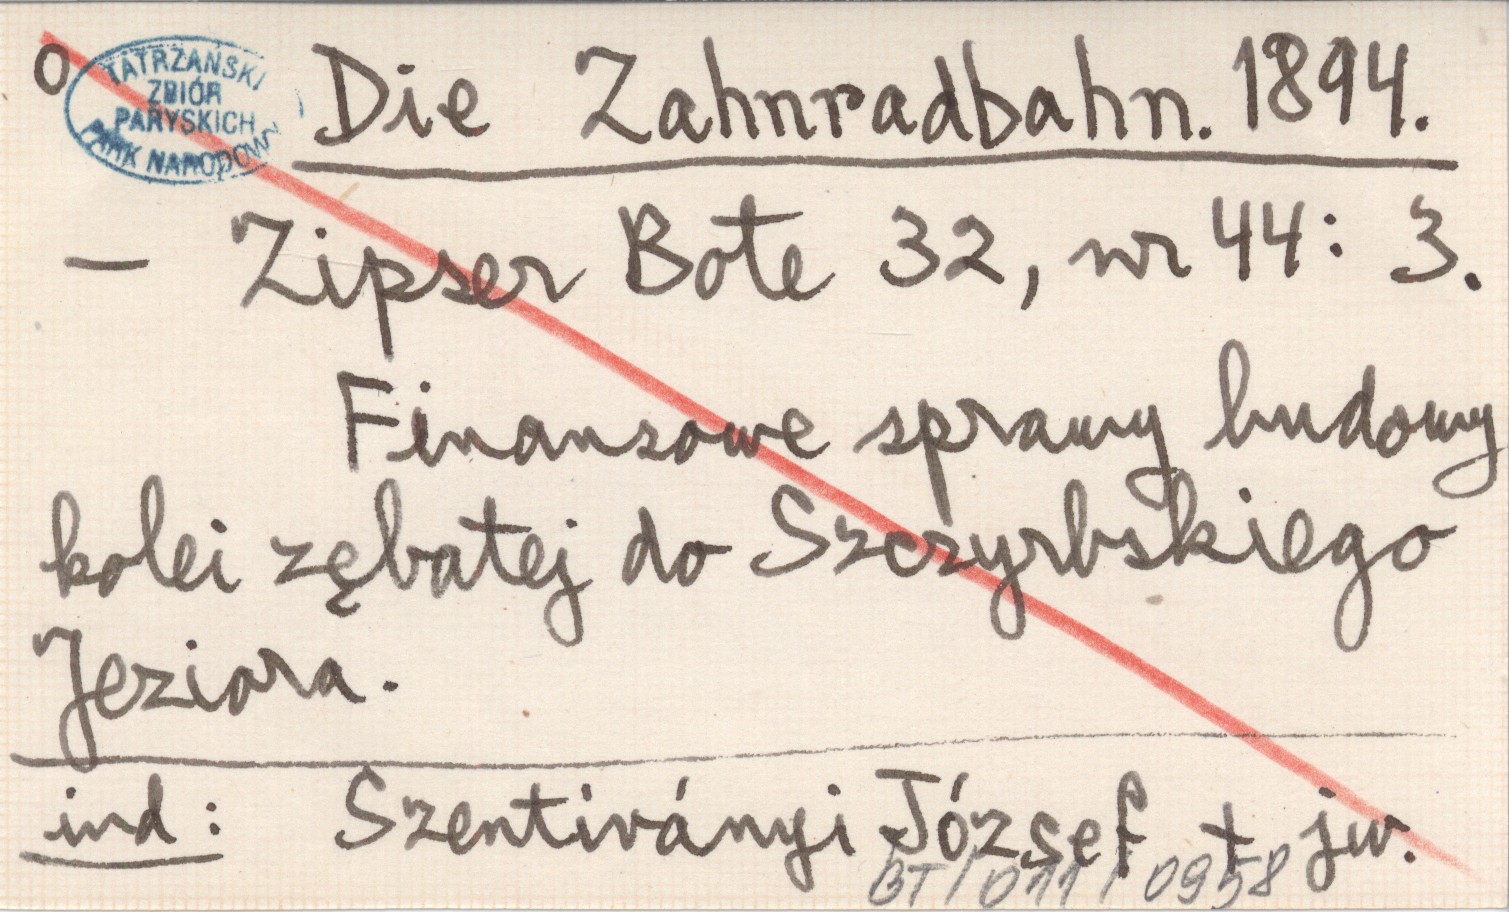 o
TATRZAŃSKI
ZBIÓR
PARYSKICH
PARK NARODOWY
Die Zahnradbahn. 1894.
— Zipser Bote 32, nr 44: 3.
Finansowe sprawy budowy
kolei zębatej do Szczyrbskiego
Jeziora.
ind: Szentiványi József + jw.
BT/011/0958